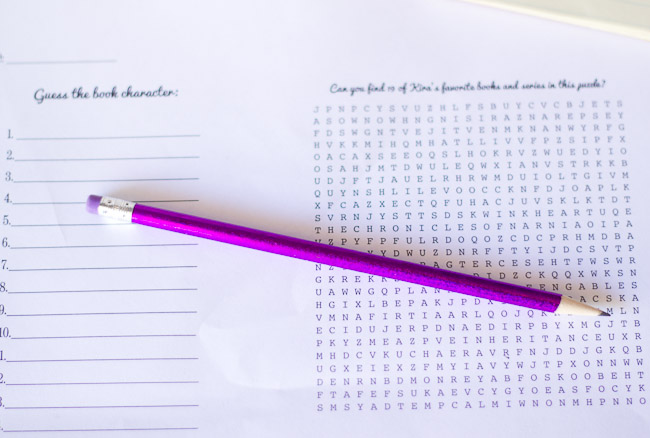 Guess the book character:
1.
2.
3.
4.
5.
6.
7.
8.
9.
10.
1.
2.
3.
4.
Can you find 10 of Kira's favorite books and series in this puzzle?
J P N P C Y S V U Z H L F S B U Y C V C B J E T S
A S O W N O W H N G N I S I R A Z N A R E P S E Y
F D S W G N T V E J I T V E N M K N A N W Y R F G
H V K K M I H Q M H A T L L I V V F P Z S I P F X
O A C A X S E E O Q S L H O K R V Z W U E D Y I O
O S A H J M T D W U L E Q W X I A N V S T R K K B
U D J F T J A U E L R H R W M D U I O L T G I V M
Q U Y N S H L I L E V O O C C K N F D J O A P L K
X F C A Z X E C T Q F U H A C J U V S K L K T D T
S V R N J Y S T T S D S K W I N K H E A R T U Q E
T H E C H R O N I C L E S O F N A R N I A O I P A
Z P Y F P F U L R D O Q O Z C D C P R H M D B A
Y D W U Z D N R F F T Y I J D C S V T P
N Z A G T E R C E S E H T F W S W R
G K R E K D I D Z C K Q Q X W K S N
U A W W G Q P L A N E N G A B L E S
H G I X L B E P A K J P D X A C S K A
V M N A F I R T I A A R L Q O J Q M L N
E C I D U J E R P D N A E D I R P B Y X M G J T B
P K Y Z M E A Z P V E I N H E R I T A N C E U X R
M H D C V K U C H A E R A V R F N J D D J G K Q B
U G X E I E X Z F M Y I A V Y W J T P X O N N W W
D E N R N B D M O N R E Y A B F O S K O O B E H T
F T A F E F S U K A E V C Y G Y O E A S F O C Y K
S M S Y A D T E M P C A L M I W N O N M H P N N O